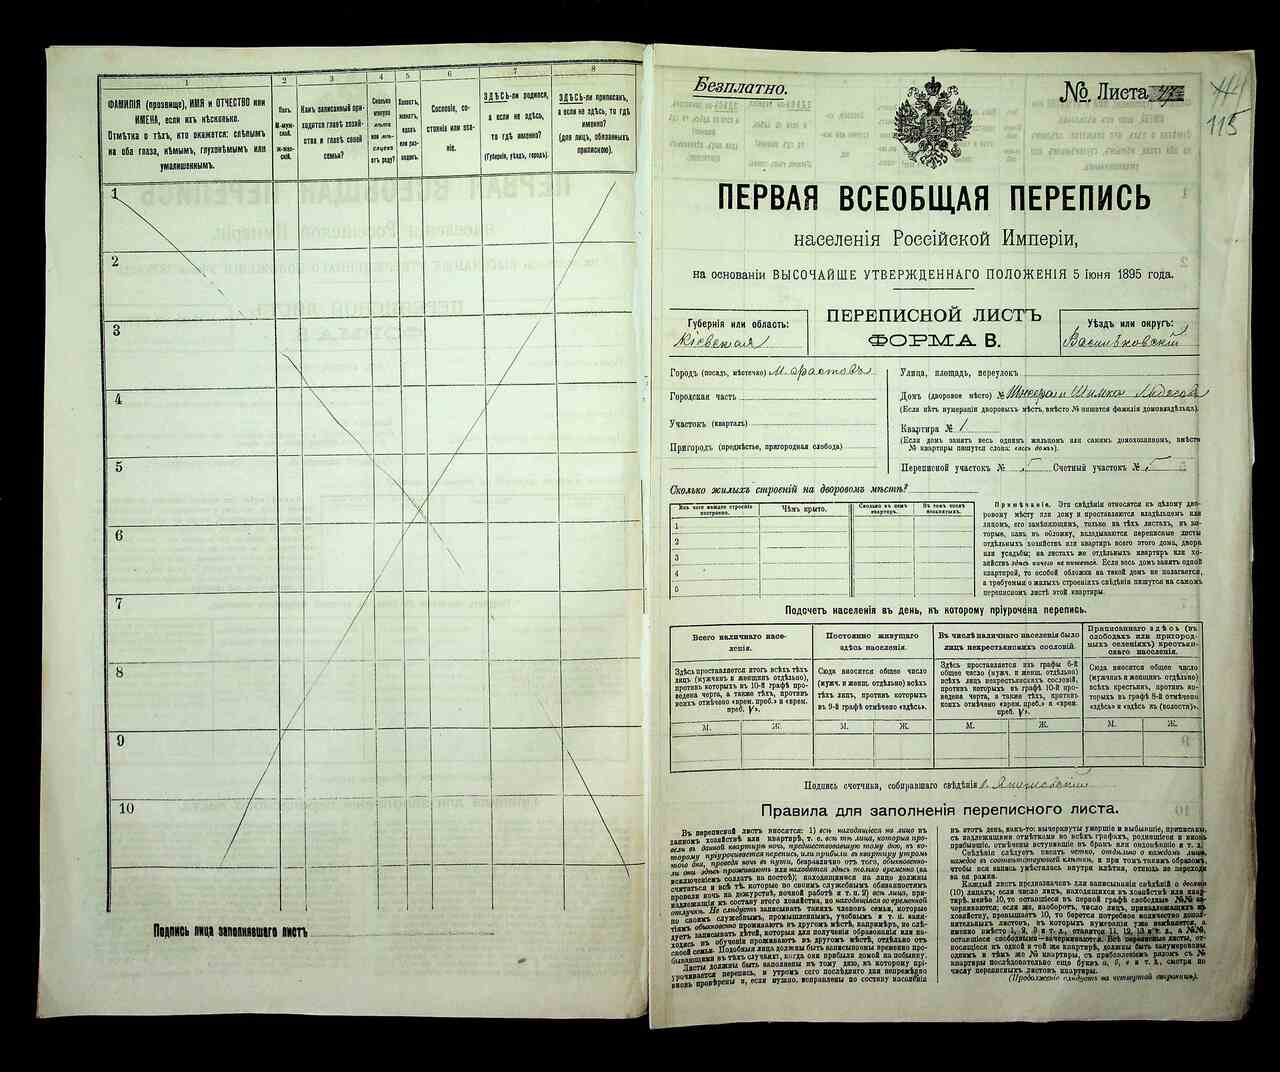 1
2
3
4
5
6
7
8
ФАМИЛІЯ (прозвище), ИМЯ и ОТЧЕСТВО или
ИМЕНА, если ихъ нѣсколько.
Отмѣтка о тѣхъ, кто окажется: слѣпымъ
на оба глаза, нѣмымъ, глухонѣмымъ или
умалишеннымъ.
Полъ.
М-муж-
ской.
Ж-жен-
скій.
Какъ записанный при-
ходится главѣ хозяй-
ства и главѣ своей
семьи?
Сколько
минуло
лѣтъ
или мѣс-
яцевъ
отъ роду?
Холостъ,
женатъ,
вдовъ
или раз-
веденъ.
Сословіе, со-
стояніе или зва-
ніе.
ЗДѢСЬ-ли родился,
а если не здѣсь,
то гдѣ именно?
(Губернія, уѣздъ, городъ).
ЗДѢСЬ-ли приписанъ,
а если не здѣсь, то гдѣ
именно?
(для лицъ, обязанныхъ
припискою).
1
2
3
4
5
6
7
8
9
10
Подпись лица заполнявшаго листъ
Безплатно.
№ Листа
115
ПЕРВАЯ ВСЕОБЩАЯ ПЕРЕПИСЬ
населенія Россійской Имперіи,
на основаніи ВЫСОЧАЙШЕ УТВЕРЖДЕННАГО ПОЛОЖЕНІЯ 5 Іюня 1895 года.
Губернія или область:
Кіевская
ПЕРЕПИСНОЙ ЛИСТЪ
ФОРМА В.
Уѣздъ или округъ:
Васильковскій
Городъ (посадъ, мѣстечко) м. Фастовъ
Городская часть
Участокъ (кварталъ)
Пригородъ (предмѣстье, пригородная слобода)
Улица, площадь, переулокъ
Домъ (дворовое мѣсто) № Шимка
(Если нѣтъ нумераціи дворовыхъ мѣстъ, вмѣсто № пишется фамилія домовладѣльца).
Квартира № 1
(Если домъ занятъ весь однимъ жильцомъ или самимъ домохозяиномъ, вмѣсто
№ квартиры пишутся слова: «весь домъ»).
Переписной участокъ № 5 Счетный участокъ № 5
Сколько жилыхъ строеній на дворовомъ мѣстѣ?
Изъ чего каждое строеніе
построено.
Чѣмъ крыто.
Сколько въ немъ
квартиръ.
Въ томъ числѣ
незанятыхъ.
1
2
3
4
5
Примѣчаніе. Эти свѣдѣнія относятся къ цѣлому дво-
ровому мѣсту или дому и проставляются владѣльцемъ или
лицомъ, его замѣняющимъ, только на тѣхъ листахъ, въ ко-
торые, какъ въ обложку, вкладываются переписные листы
отдѣльныхъ хозяйствъ или квартиръ всего этого дома, двора
или усадьбы; на листахъ же отдѣльныхъ квартиръ или хо-
зяйствъ здѣсь ничего не пишется. Если весь домъ занятъ одной
квартирой, то особой обложки на такой домъ не полагается,
а требуемыя о жилыхъ строеніяхъ свѣдѣнія пишутся на самомъ
переписномъ листѣ этой квартиры.
Подсчетъ населенія въ день, къ которому пріурочена перепись.
Всего наличнаго насе-
ленія.
Постоянно живущаго
здѣсь населенія.
Въ числѣ наличнаго населенія было
лицъ некрестьянскихъ сословій.
Приписаннаго здѣсь (въ
слободахъ или пригород-
ныхъ селеніяхъ) крестьян-
скаго населенія.
Здѣсь проставляется итогъ всѣхъ тѣхъ
лицъ (мужчинъ и женщинъ отдѣльно),
противъ которыхъ въ 10-й графѣ про-
ведена черта, а также тѣхъ, противъ
коихъ отмѣчено «врем. преб.» и «врем.
преб. V».
Сюда вносится общее число
(мужч. и женщ. отдѣльно) всѣхъ
тѣхъ лицъ, противъ которыхъ
въ 9-й графѣ отмѣчено «здѣсь».
Здѣсь проставляется изъ графы 6-й
общее число (мужч. и женщ. отдѣльно)
всѣхъ лицъ некрестьянскихъ сословій,
противъ которыхъ въ графѣ 10-й про-
ведена черта, а также тѣхъ, противъ
коихъ отмѣчено «врем. преб.» и «врем.
преб. V».
Сюда вносится общее число
(мужчинъ и женщинъ отдѣльно)
всѣхъ крестьянъ, противъ ко-
торыхъ въ графѣ 8-й отмѣчено
«здѣсь» и «здѣсь къ (волости)».
М. Ж. М. Ж. М. Ж. М. Ж.
Подпись счетчика, собиравшаго свѣдѣнія
Правила для заполненія переписного листа.
Въ переписной листъ вносятся: 1) всѣ находящіеся на лицо въ
данномъ хозяйствѣ или квартирѣ, т. е. всѣ тѣ лица, которыя про-
вели въ данной квартирѣ ночь, предшествовавшую тому дню, къ ко-
торому пріурочивается перепись, или прибыли въ квартиру утромъ
того дня, проведя ночь въ пути, безразлично отъ того, обыкновен-
но ли они здѣсь проживаютъ или находятся здѣсь только временно (за
исключеніемъ солдатъ на постоѣ); находящимися на лицо должны
считаться и всѣ тѣ, которые по своимъ служебнымъ обязанностямъ
провели ночь на дежурствѣ, ночной работѣ и т. п. 2) всѣ лица, при-
надлежащія къ составу этого хозяйства, но находящіяся во временной
отлучкѣ. Не слѣдуетъ записывать такихъ членовъ семьи, которые
по своимъ служебнымъ, промышленнымъ, учебнымъ и т. п. заня-
тіямъ обыкновенно проживаютъ въ другомъ мѣстѣ, напримѣръ, не слѣ-
дуетъ записывать дѣтей, которыя для полученія образованія или на-
ходясь въ обученіи проживаютъ въ другомъ мѣстѣ, отдѣльно отъ
своей семьи. Подобныя лица должны быть записываемы временно пре-
бывающими въ тѣхъ случаяхъ, когда они прибыли домой на побывку.
Листы должны быть заполнены къ тому дню, къ которому прі-
урочивается перепись, и утромъ сего послѣдняго дня непремѣнно
вновь провѣрены и, если нужно, исправлены по составу населенія
въ этотъ день, какъ-то: вычеркнуты умершіе и выбывшіе, приписаны,
съ надлежащими отмѣтками во всѣхъ графахъ, родившіеся и вновь
прибывшіе, отмѣчены вступившіе въ бракъ или овдовѣвшіе и т. д.
Свѣдѣнія слѣдуетъ писать четко, отдѣльно о каждомъ лицѣ,
каждое въ соотвѣтствующей клѣткѣ, и при томъ такимъ образомъ,
чтобы вся запись умѣстилась внутри клѣтки, отнюдь не переходя
за ея рамки.
Каждый листъ предназначенъ для записыванія свѣдѣній о десяти
(10) лицахъ; если число лицъ, находящихся въ хозяйствѣ или квар-
тирѣ, менѣе 10, то оставшіеся въ первой графѣ свободные №№ за-
черкиваются; если же, наоборотъ, число лицъ, принадлежащихъ къ
хозяйству, превышаетъ 10, то берется потребное количество допол-
нительныхъ листовъ, въ которыхъ нумерація уже измѣняется, а
именно вмѣсто 1, 2, 3 и т. д., ставится 11, 12, 13 и т. д., а №№,
оставшіеся свободными—зачеркиваются. Всѣ переписные листы, от-
носящіеся къ одной и той же квартирѣ, должны быть занумерованы
однимъ и тѣмъ же № квартиры, съ прибавленіемъ рядомъ съ №
квартиры послѣдовательно еще буквъ а, б, в и т. д., смотря по
числу переписныхъ листовъ квартиры.
(Продолженіе слѣдуетъ на четвертой страницѣ).